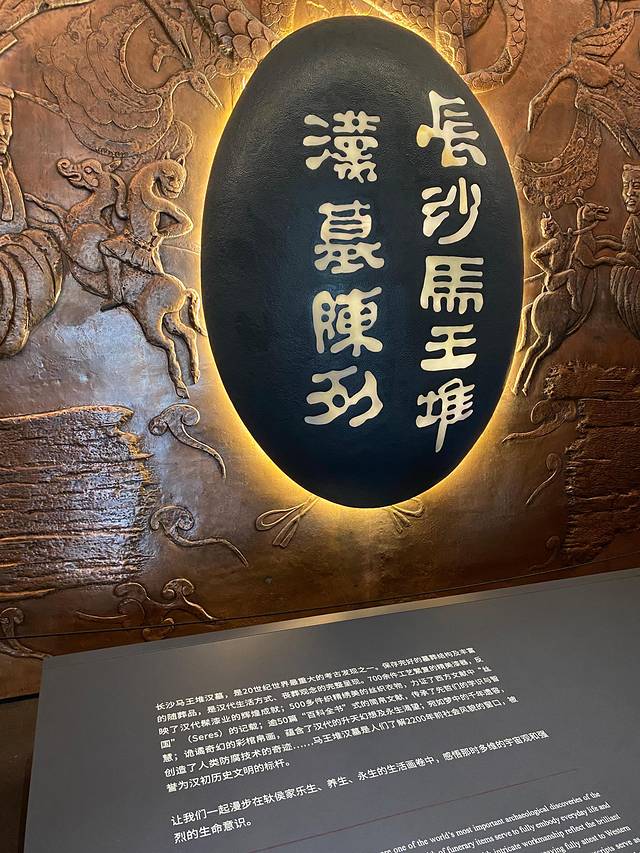 長沙馬王堆
漢墓陳列
长沙马王堆汉墓，是20世纪世界最重大的考古发现之一。保存完好的墓葬结构及丰富
的随葬品，是汉代生活方式、丧葬观念的完整呈现。700余件工艺繁复的精美漆器，反
映了汉代髹漆业的辉煌成就；500多件织精绣美的丝织衣物，力证了西方文献中“丝
国”（Seres）的记载；逾50篇“百科全书”式的简帛文献，传承了先哲们的学识与智
慧；诡谲奇幻的彩棺帛画，蕴含了汉代的升天幻想及永生渴望；宛如梦中的千年遗容，
创造了人类防腐技术的奇迹……马王堆汉墓是人们了解2200年前社会风貌的窗口，被
誉为汉初历史文明的标杆。
让我们一起漫步在轪侯家乐生、养生、永生的生活画卷中，感悟那时多维的宇宙观和强
烈的生命意识。
are one of the world's most important archaeological discoveries of the
of funerary items serve to fully embody everyday life and
intricate workmanship reflect the brilliant
fully attest to Western
scripts serve as